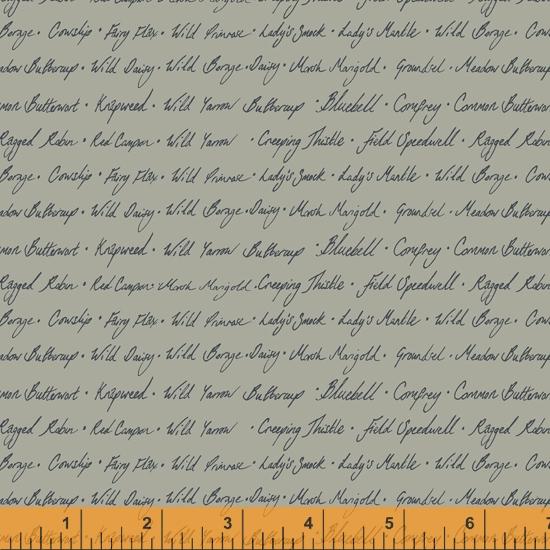 Borage · Cowslip · Fairy Flax · Wild Primrose · Lady's Smock · Lady's Mantle · Wild Borage · Cow
adow Buttercup · Wild Daisy · Wild Borage · Daisy · Marsh Marigold · Groundsel · Meadow Buttercup
mon Butterwort · Knapweed · Wild Yarrow Buttercup · Bluebell · Comfrey · Common Butterwort
Ragged Robin · Red Campion · Wild Yarrow · Creeping Thistle · Field Speedwell · Ragged Robin
Borage · Cowslip · Fairy Flax · Wild Primrose · Lady's Smock · Lady's Mantle · Wild Borage · Cow
adow Buttercup · Wild Daisy · Wild Borage · Daisy · Marsh Marigold · Groundsel · Meadow Buttercup
mon Butterwort · Knapweed · Wild Yarrow Buttercup · Bluebell · Comfrey · Common Butterwort
Ragged Robin · Red Campion · Marsh Marigold · Creeping Thistle · Field Speedwell · Ragged Robin
Borage · Cowslip · Fairy Flax · Wild Primrose · Lady's Smock · Lady's Mantle · Wild Borage · Cow
adow Buttercup · Wild Daisy · Wild Borage · Daisy · Marsh Marigold · Groundsel · Meadow Buttercup
mon Butterwort · Knapweed · Wild Yarrow Buttercup · Bluebell · Comfrey · Common Butterwort
Ragged Robin · Red Campion · Wild Yarrow · Creeping Thistle · Field Speedwell · Ragged Robin
Borage · Cowslip · Fairy Flax · Wild Primrose · Lady's Smock · Lady's Mantle · Wild Borage · Cow
adow Buttercup · Wild Daisy · Wild Borage · Daisy · Marsh Marigold · Groundsel · Meadow Buttercup
1 2 3 4 5 6 7